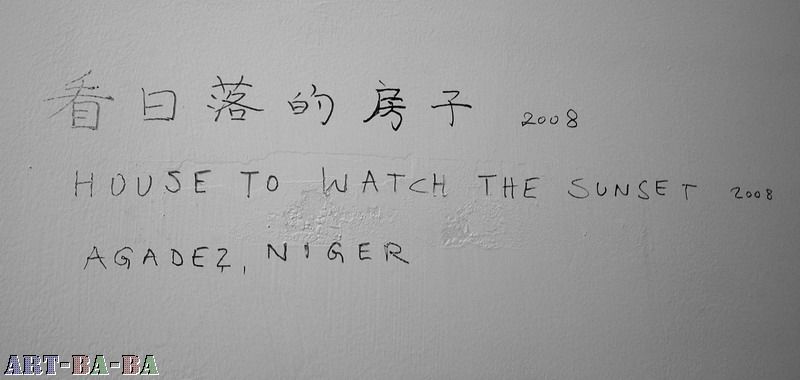 看日落的房子 2008
HOUSE TO WATCH THE SUNSET 2008
AGADEZ, NIGER
ART-BA-BA